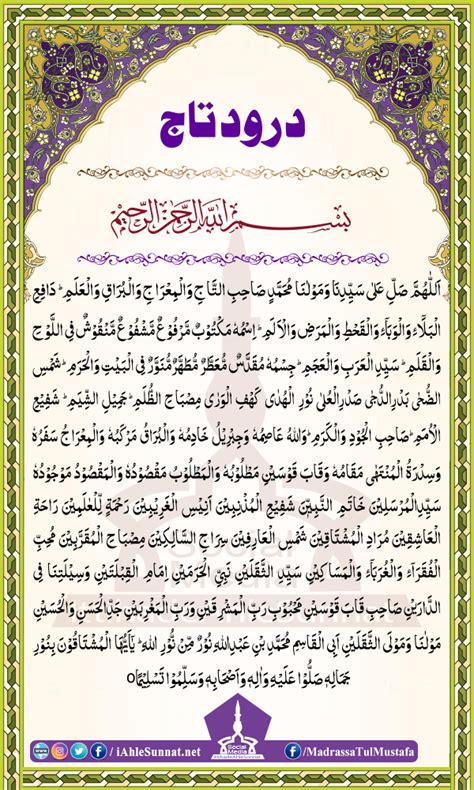 درود تاج
بسم الله الرحمن الرحيم
اَللّٰهُمَّ صَلِّ عَلٰى سَيِّدِنَا وَمَوْلٰنَا مُحَمَّدٍ صَاحِبِ التَّاجِ وَالْمِعْرَاجِ وَالْبُرَاقِ وَالْعَلَمِ ؕ دَافِعِ
الْبَلَآءِ وَالْوَبَآءِ وَالْقَحْطِ وَالْمَرَضِ وَالْاَلَمِ ؕ اِسْمُهٗ مَكْتُوْبٌ مَّرْفُوْعٌ مَّشْفُوْعٌ مَّنْقُوْشٌ فِى اللَّوْحِ
وَالْقَلَمِ ؕ سَيِّدِ الْعَرَبِ وَالْعَجَمِ ؕ جِسْمُهٗ مُقَدَّسٌ مُّعَطَّرٌ مُّطَهَّرٌ مُّنَوَّرٌ فِى الْبَيْتِ وَالْحَرَمِ ؕ شَمْسِ
الضُّحٰى بَدْرِ الدُّجٰى صَدْرِ الْعُلٰى نُوْرِ الْهُدٰى كَهْفِ الْوَرٰى مِصْبَاحِ الظُّلَمِ ؕ جَمِيْلِ الشِّيَمِ ؕ شَفِيْعِ
الْاُمَمِ ؕ صَاحِبِ الْجُوْدِ وَالْكَرَمِ ؕ وَاللّٰهُ عَاصِمُهٗ وَجِبْرِيْلُ خَادِمُهٗ وَالْبُرَاقُ مَرْكَبُهٗ وَالْمِعْرَاجُ سَفَرُهٗ
وَسِدْرَةُ الْمُنْتَهٰى مَقَامُهٗ وَقَابَ قَوْسَيْنِ مَطْلُوْبُهٗ وَالْمَطْلُوْبُ مَقْصُوْدُهٗ وَالْمَقْصُوْدُ مَوْجُوْدُهٗ
سَيِّدِ الْمُرْسَلِيْنَ خَاتَمِ النَّبِيّٖنَ شَفِيْعِ الْمُذْنِبِيْنَ اَنِيْسِ الْغَرِيْبِيْنَ رَحْمَةٍ لِّلْعٰلَمِيْنَ رَاحَةِ
الْعَاشِقِيْنَ مُرَادِ الْمُشْتَاقِيْنَ شَمْسِ الْعَارِفِيْنَ سِرَاجِ السَّالِكِيْنَ مِصْبَاحِ الْمُقَرَّبِيْنَ مُحِبِّ
الْفُقَرَآءِ وَالْغُرَبَآءِ وَالْمَسَاكِيْنِ سَيِّدِ الثَّقَلَيْنِ نَبِىِّ الْحَرَمَيْنِ اِمَامِ الْقِبْلَتَيْنِ وَسِيْلَتِنَا فِى
الدَّارَيْنِ صَاحِبِ قَابَ قَوْسَيْنِ مَحْبُوْبِ رَبِّ الْمَشْرِقَيْنِ وَرَبِّ الْمَغْرِبَيْنِ جَدِّ الْحَسَنِ وَالْحُسَيْنِ
مَوْلٰنَا وَمَوْلَى الثَّقَلَيْنِ اَبِى الْقَاسِمِ مُحَمَّدِ بْنِ عَبْدِاللّٰهِ نُوْرٌ مِّنْ نُّوْرِ اللّٰهِ ؕ يٰٓاَيُّهَا الْمُشْتَاقُوْنَ بِنُوْرِ
جَمَالِهٖ صَلُّوْا عَلَيْهِ وَاٰلِهٖ وَاَصْحَابِهٖ وَسَلِّمُوْا تَسْلِيْمًا O
Social
Media
/ iAhleSunnat.net
/MadrassaTulMustafa